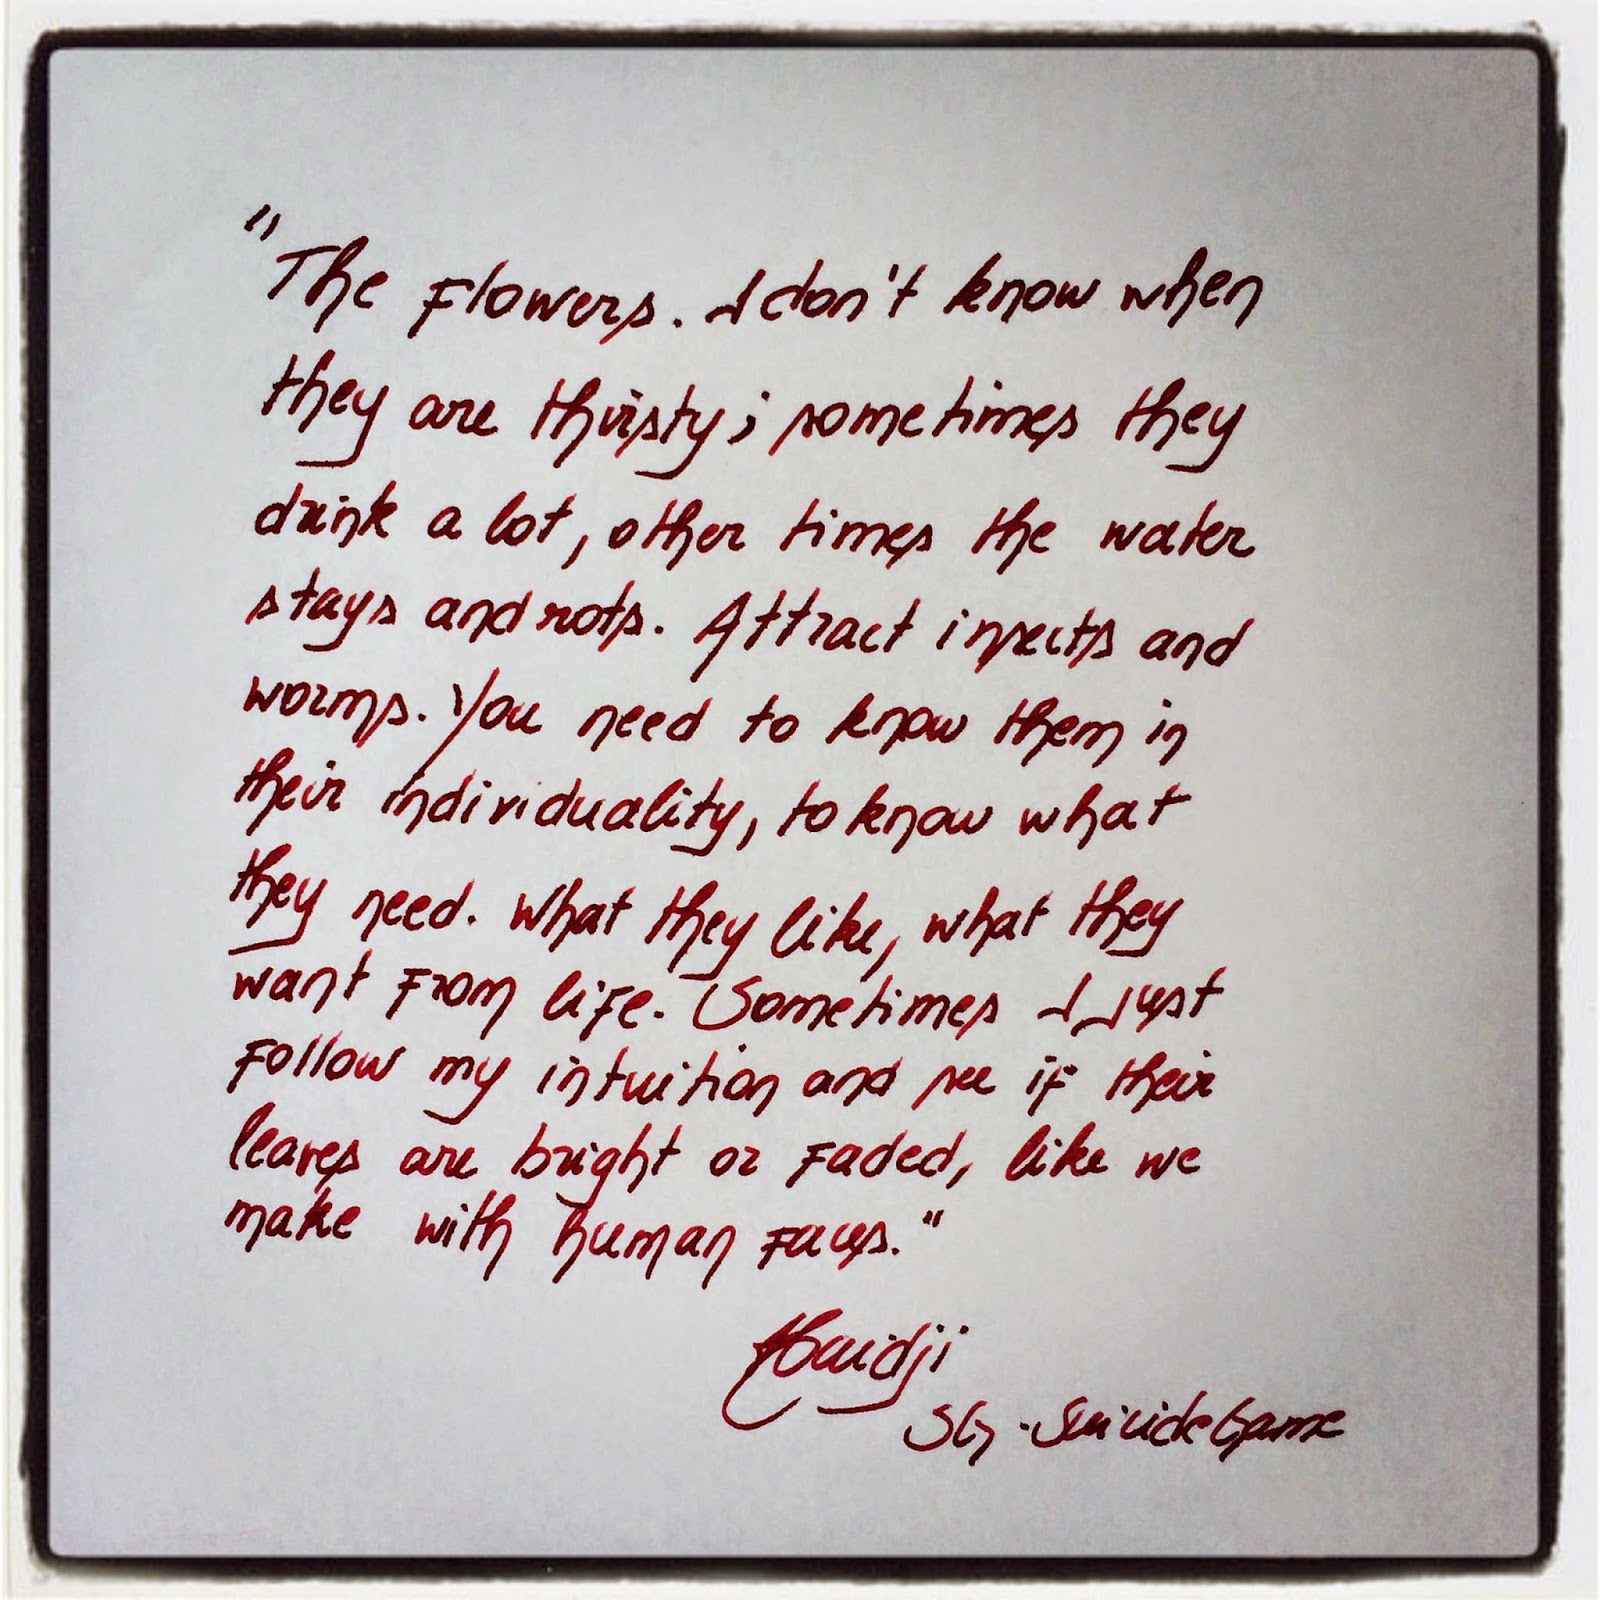 "The Flowers. I don't know when
they are thirsty; sometimes they
drink a lot, other times the water
stays and rots. Attract insects and
worms. You need to know them in
their individuality, to know what
they need. What they like, what they
want from life. Sometimes I just
follow my intuition and see if their
leaves are bright or faded, like we
make with human faces."
Haidji
SG - Suicide Game